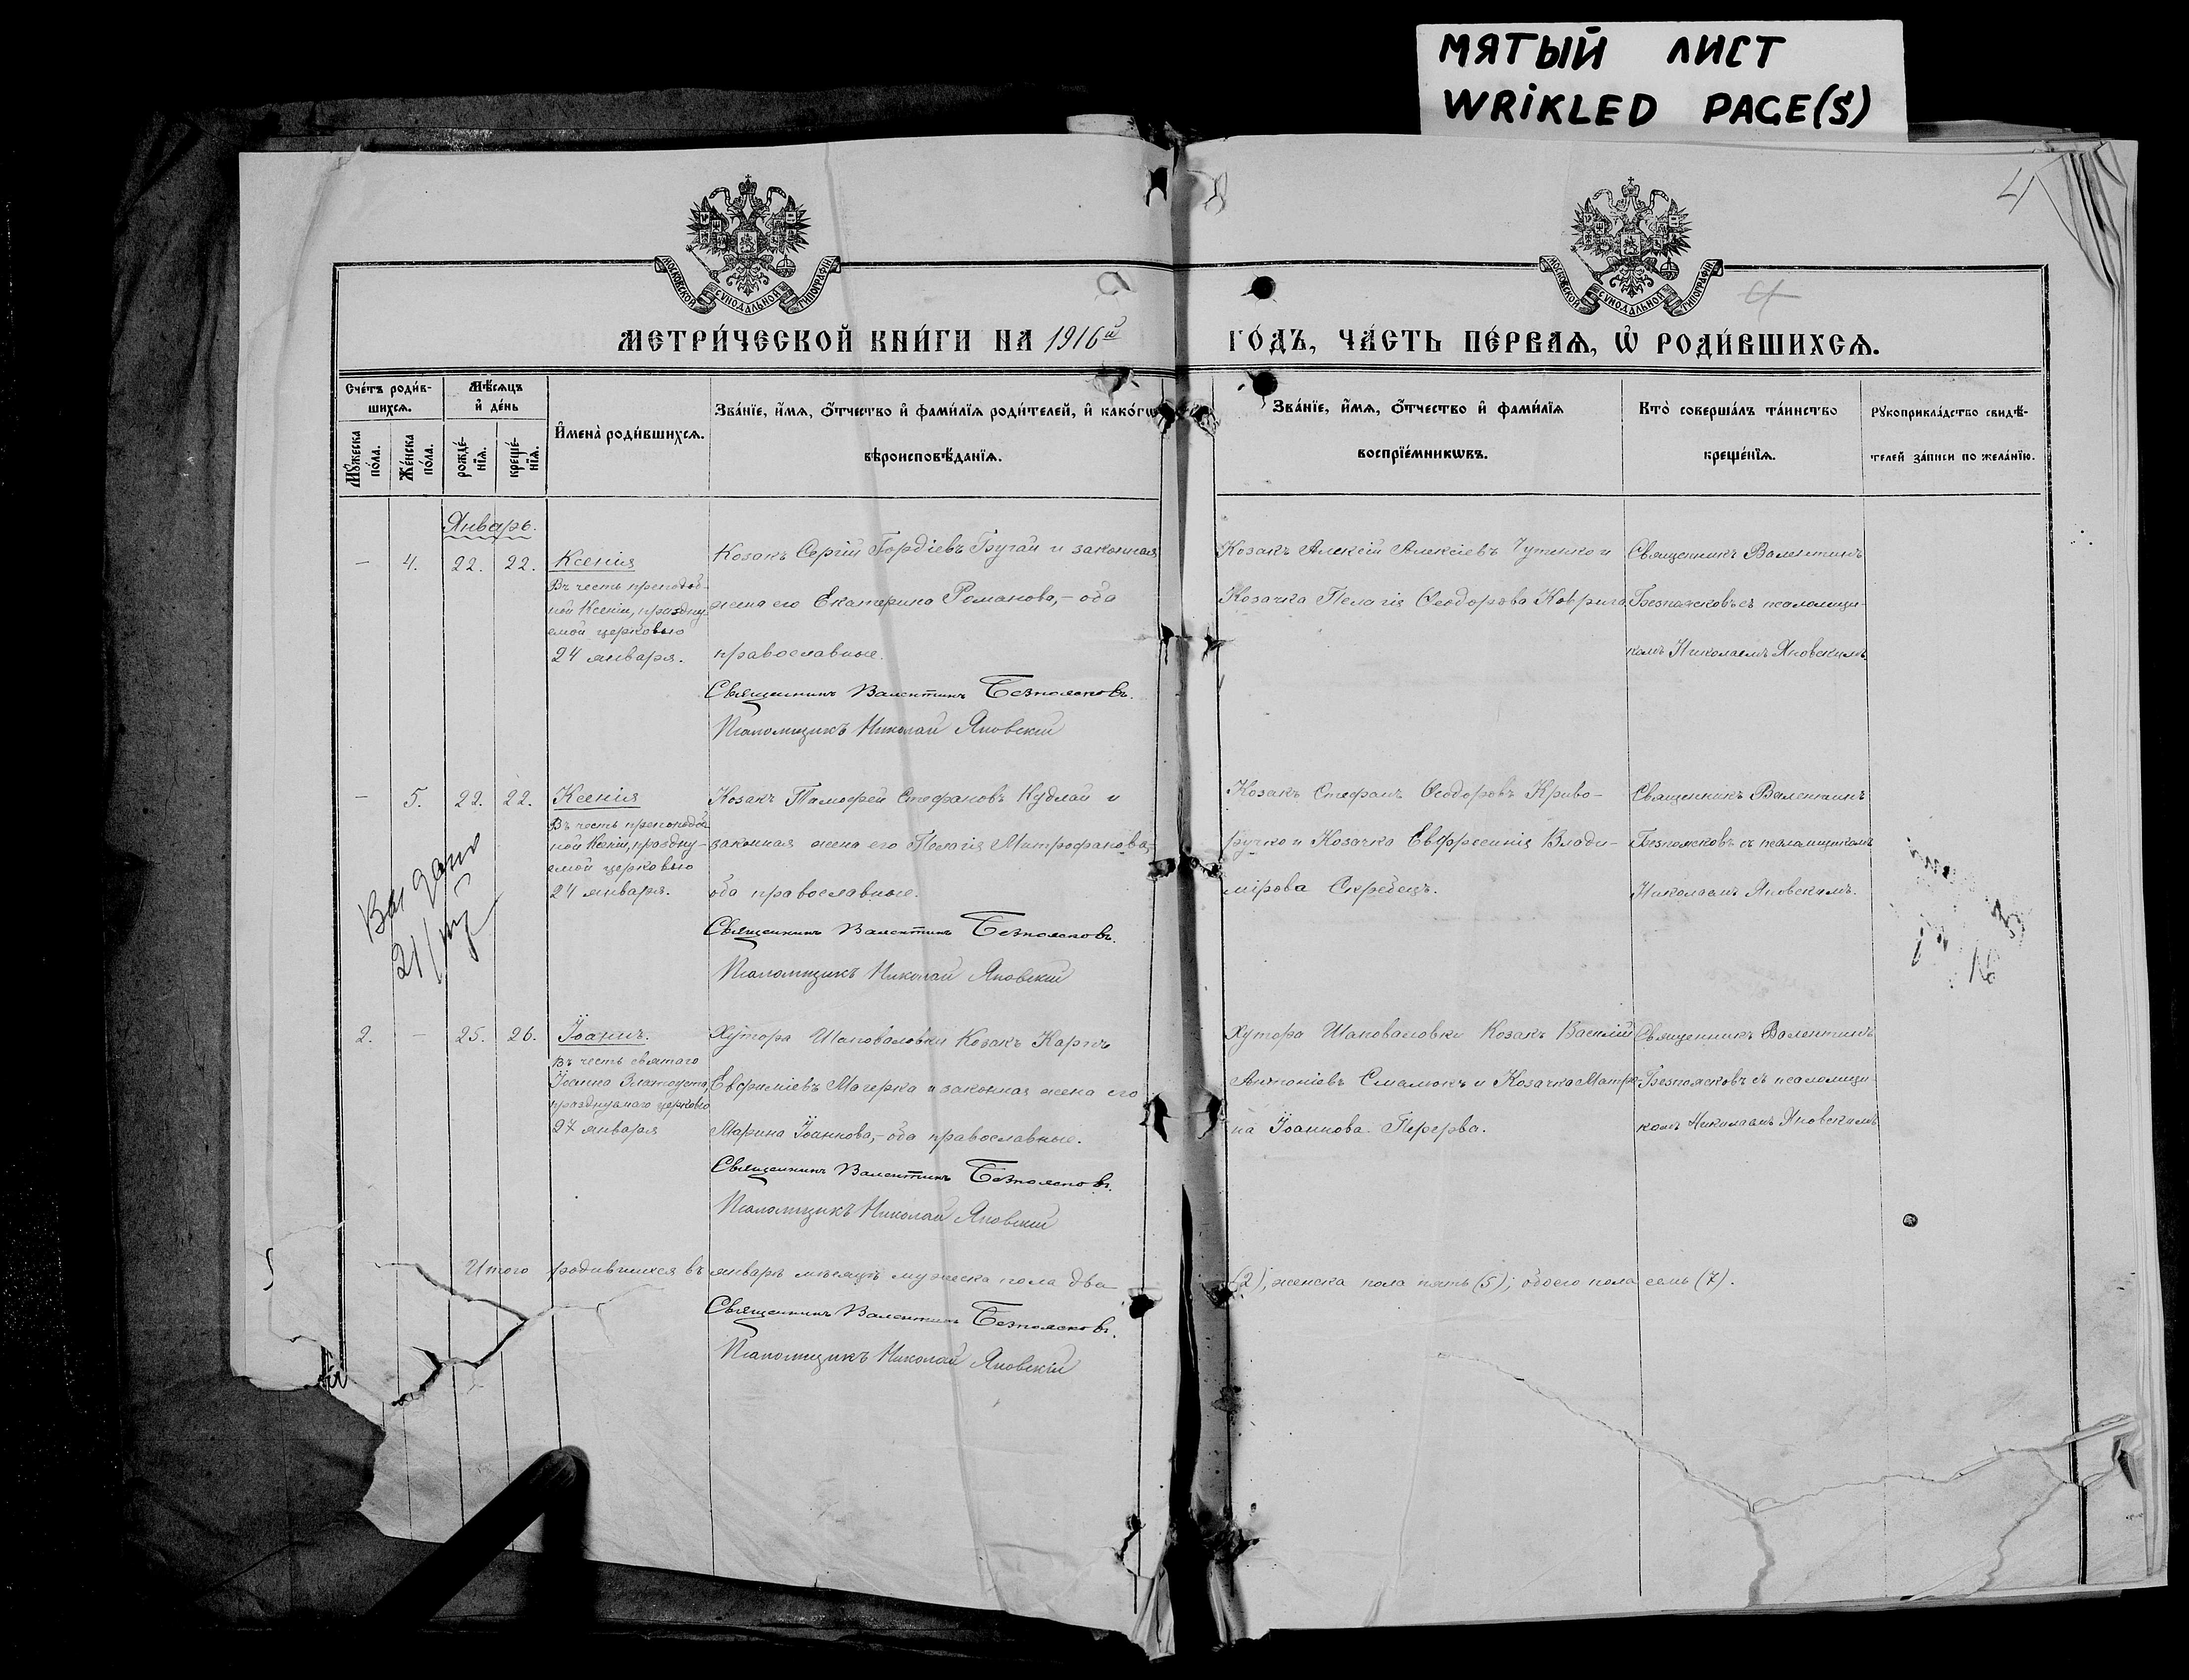 МЯТЫЙ ЛИСТ
WRIKLED PAGE(S)
4
МОСКОВСКОЙ СѴНОДАЛЬНОЙ ТИПОГРАФІИ
МОСКОВСКОЙ СѴНОДАЛЬНОЙ ТИПОГРАФІИ
4
МЕТРИ́ЧЕСКОЙ КНИ́ГИ НА 1916й
ГО́ДЪ, ЧА́СТЬ ПЕ́РВАѦ, Ѡ҆ РОДИ́ВШИХСѦ.
Сче́тъ роди́в-
шихсѧ.
Мꙋ́жеска по́ла.
Же́нска по́ла.
Мѣ́сѧцъ
и҆ де́нь
рожде́-
нїѧ.
креще́-
нїѧ.
И҆мена̀ роди́вшихсѧ.
Зва́нїе, и҆́мѧ, ѻ҆́тчество и҆ фами́лїѧ роди́телей, и҆ како́гѡ
вѣроисповѣ́данїѧ.
Зва́нїе, и҆́мѧ, ѻ҆́тчество и҆ фами́лїѧ
воспрїе́мникѡвъ.
Кто̀ соверша́лъ та́инство
креще́нїѧ.
Рꙋкоприкла́дство свидѣ́-
телей за́писи по жела́нїю.
Январь.
— 4. 22. 22. Ксенія
Въ честь преподоб-
ной Ксеніи, праздну-
емой церковью
24 января.
Козакъ Сергій Гордіевъ Бугай и законная
жена его Екатерина Романова,- оба
православные.
Священникъ Валентинъ Безпоясковъ.
Псаломщикъ Николай Яновскій
Козакъ Алексій Алексіевъ и
Козачка Пелагія Ѳеодорова
Священникъ Валентинъ
Безпоясковъ съ псаломщи-
комъ Николаемъ Яновскимъ.
— 5. 22. 22. Ксенія
Въ честь преподоб-
ной Ксеніи, праздну-
емой церковью
24 января.
Козакъ Тимофей Стефановъ Кудлай и
законная жена его Пелагія Митрофанова,-
оба православные.
Священникъ Валентинъ Безпоясковъ.
Псаломщикъ Николай Яновскій
Козакъ Стефанъ Ѳеодоровъ Криво-
ручко и Козачка Евфросинія Влади-
мірова Скребецъ.
Священникъ Валентинъ
Безпоясковъ съ псаломщикомъ
Николаемъ Яновскимъ.
Выдано
2. — 25. 26. Іоаннъ.
Въ честь святаго
Іоанна Златоуста,
празднуемаго церковью
27 января
Хутора Шаповаловки Козакъ Карпъ
Евфиміевъ Магерка и законная жена его
Марина Іоаннова,- оба православные.
Священникъ Валентинъ Безпоясковъ.
Псаломщикъ Николай Яновскій
Хутора Шаповаловки Козакъ Василій
Антоніевъ и Козачка Матро-
на Іоаннова Перерва.
Священникъ Валентинъ
Безпоясковъ съ псаломщи-
комъ Николаемъ Яновскимъ
Итого родившихся въ январѣ мѣсяцѣ мужеска пола два
(2), женска пола пять (5); обоего пола семь (7).
Священникъ Валентинъ Безпоясковъ.
Псаломщикъ Николай Яновскій